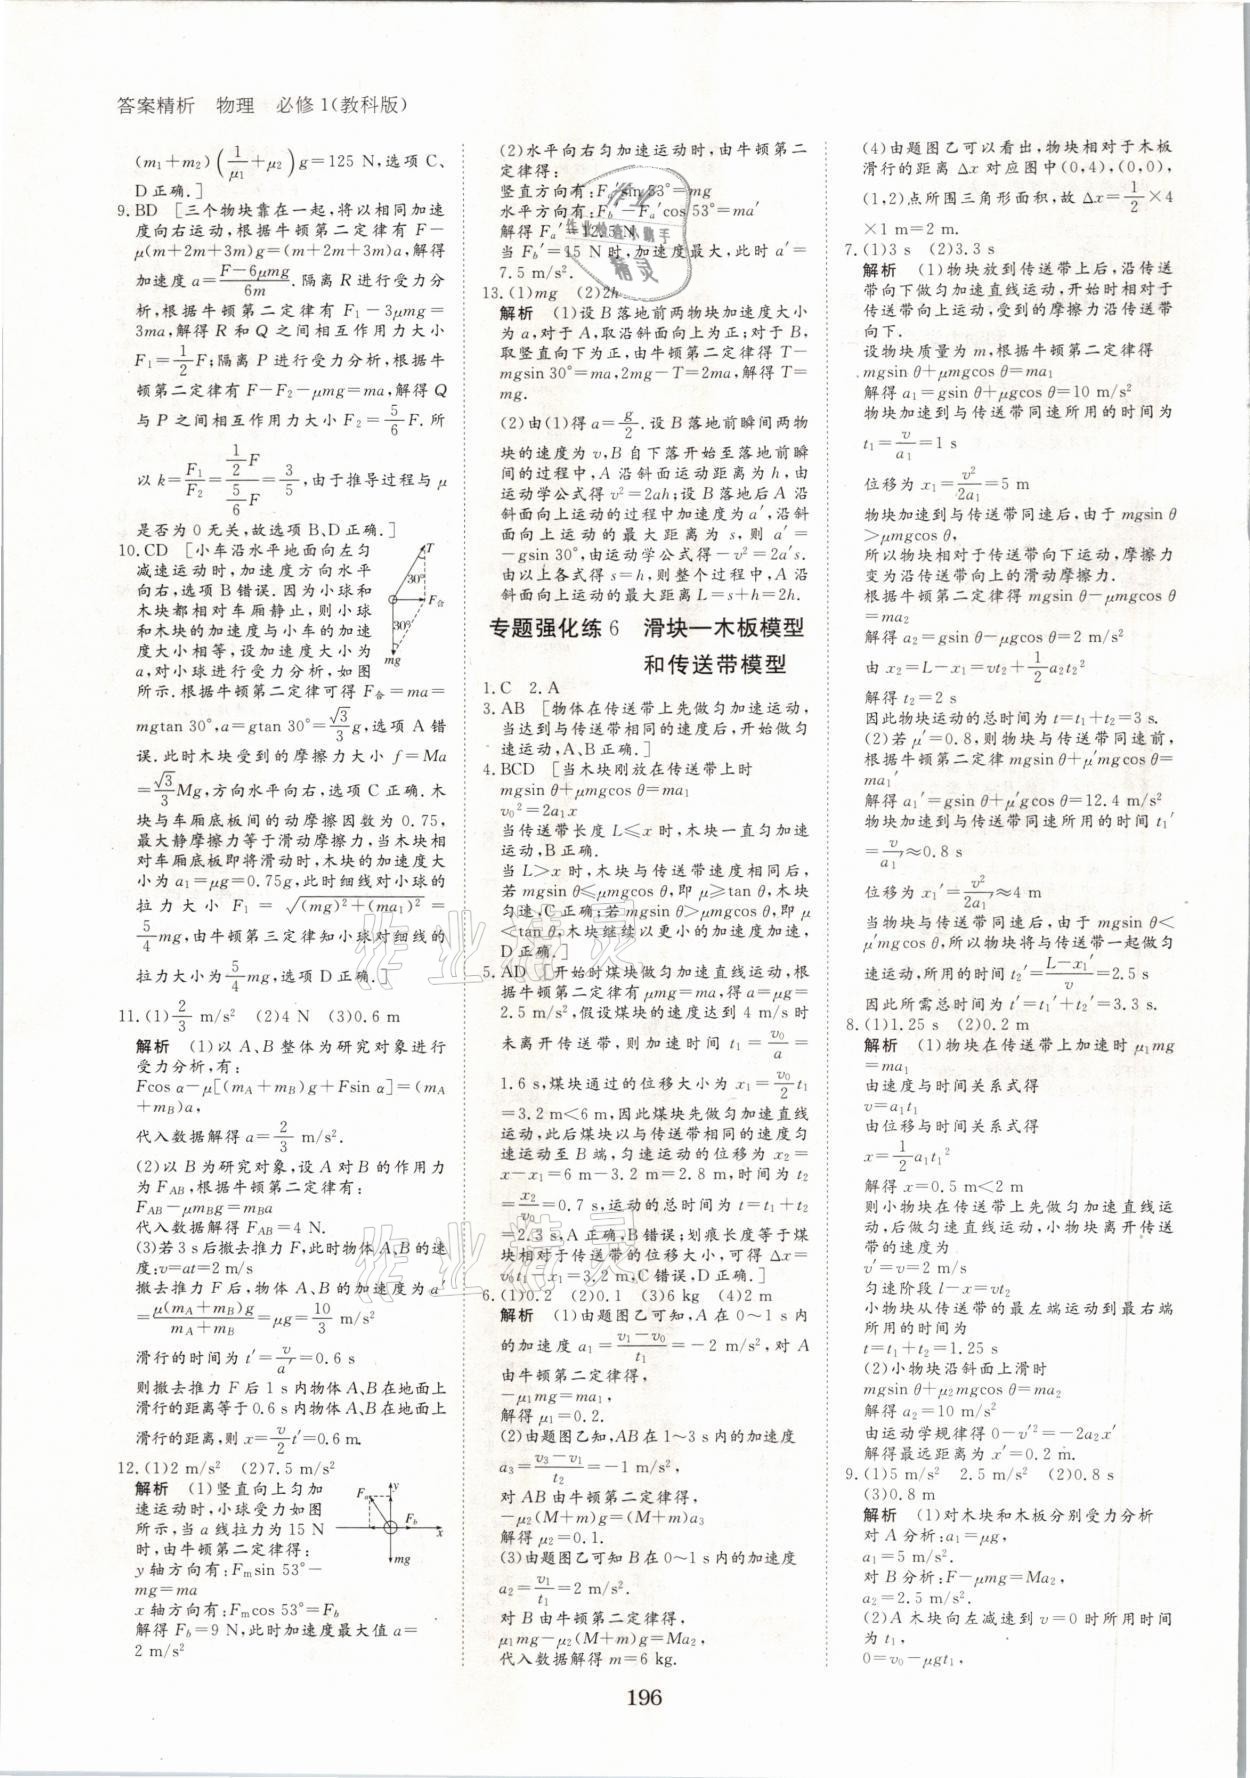 答案精析 物理 必修1(教科版)
(m₁+m₂)(1/μ₁+μ₂)g=125 N,选项C、
D正确.]
9.BD [三个物块靠在一起,将以相同加速
度向右运动,根据牛顿第二定律有F-
μ(m+2m+3m)g=(m+2m+3m)a,解得
加速度a=(F-6μmg)/6m.隔离R进行受力分
析,根据牛顿第二定律有F₁-3μmg=
3ma,解得R和Q之间相互作用力大小
F₁=1/2F;隔离P进行受力分析,根据牛
顿第二定律有F-F₂-μmg=ma,解得Q
与P之间相互作用力大小F₂=5/6F.所
以k=F₁/F₂=(1/2F)/(5/6F)=3/5,由于推导过程与μ
是否为0无关,故选项B、D正确.]
10.CD [小车沿水平地面向左匀
减速运动时,加速度方向水平
向右,选项B错误.因为小球和
木块都相对车厢静止,则小球
和木块的加速度与小车的加速
度大小相等,设加速度大小为
a,对小球进行受力分析,如图
所示.根据牛顿第二定律可得F合=ma=
mgtan 30°,a=gtan 30°=√3/3g,选项A错
误.此时木块受到的摩擦力大小f=Ma
=√3/3Mg,方向水平向右,选项C正确.木
块与车厢底板间的动摩擦因数为0.75,
最大静摩擦力等于滑动摩擦力,当木块相
对车厢底板即将滑动时,木块的加速度大
小为a₁=μg=0.75g,此时细线对小球的
拉力大小F₁=√((mg)²+(ma₁)²)=
5/4mg,由牛顿第三定律知小球对细线的
拉力大小为5/4mg,选项D正确.]
T
30°
F合
30°
mg
11.(1)2/3 m/s² (2)4 N (3)0.6 m
解析 (1)以A、B整体为研究对象进行
受力分析,有:
Fcos α-μ[(mA+mB)g+Fsin α]=(mA
+mB)a,
代入数据解得a=2/3 m/s².
(2)以B为研究对象,设A对B的作用力
为FAB,根据牛顿第二定律有:
FAB-μmBg=mBa
代入数据解得FAB=4 N.
(3)若3 s后撤去推力F,此时物体A、B的速
度:v=at=2 m/s
撤去推力F后,物体A、B的加速度为a′
=μ(mA+mB)g/(mA+mB)=μg=10/3 m/s²
滑行的时间为t′=v/a′=0.6 s
则撤去推力F后1 s内物体A、B在地面上
滑行的距离等于0.6 s内物体A、B在地面上
滑行的距离,则x=v/2t′=0.6 m.
12.(1)2 m/s² (2)7.5 m/s²
解析 (1)竖直向上匀加
速运动时,小球受力如图
所示,当a线拉力为15 N
时,由牛顿第二定律得:
y轴方向有:Fmsin 53°-
mg=ma
x轴方向有:Fmcos 53°=Fb
解得Fb=9 N,此时加速度最大值a=
2 m/s²
y
Fa
Fb
x
mg
(2)水平向右匀加速运动时,由牛顿第二
定律得:
竖直方向有:Fa′sin 53°=mg
水平方向有:Fb′-Fa′cos 53°=ma′
解得Fa′=12.5 N
当Fb′=15 N时,加速度最大,此时a′=
7.5 m/s².
13.(1)mg (2)2h
解析 (1)设B落地前两物块加速度大小
为a,对于A,取沿斜面向上为正;对于B,
取竖直向下为正,由牛顿第二定律得T-
mgsin 30°=ma,2mg-T=2ma,解得T=
mg.
(2)由(1)得a=g/2.设B落地前瞬间两物
块的速度为v,B自下落开始至落地前瞬
间的过程中,A沿斜面运动距离为h,由
运动学公式得v²=2ah;设B落地后A沿
斜面向上运动的过程中加速度为a′,沿斜
面向上运动的最大距离为s,则a′=
-gsin 30°,由运动学公式得-v²=2a′s.
由以上各式得s=h,则整个过程中,A沿
斜面向上运动的最大距离L=s+h=2h.
专题强化练6 滑块—木板模型
和传送带模型
1.C 2.A
3.AB [物体在传送带上先做匀加速运动,
当达到与传送带相同的速度后,开始做匀
速运动,A、B正确.]
4.BCD [当木块刚放在传送带上时
mgsin θ+μmgcos θ=ma₁
v₀²=2a₁x
当传送带长度L≤x时,木块一直匀加速
运动,B正确.
当L>x时,木块与传送带速度相同后,
若mgsin θ≤μmgcos θ,即μ≥tan θ,木块
匀速,C正确;若mgsin θ>μmgcos θ,即μ
<tan θ,木块继续以更小的加速度加速,
D正确.]
5.AD [开始时煤块做匀加速直线运动,根
据牛顿第二定律有μmg=ma,得a=μg=
2.5 m/s²,假设煤块的速度达到4 m/s时
未离开传送带,则加速时间t₁=v₀/a=
1.6 s,煤块通过的位移大小为x₁=v₀/2t₁
=3.2 m<6 m,因此煤块先做匀加速直线
运动,此后煤块以与传送带相同的速度匀
速运动至B端,匀速运动的位移为x₂=
x-x₁=6 m-3.2 m=2.8 m,时间为t₂
=x₂/v₀=0.7 s,运动的总时间为t=t₁+t₂
=2.3 s,A正确,B错误;划痕长度等于煤
块相对于传送带的位移大小,可得Δx=
v₀t₁-x₁=3.2 m,C错误,D正确.]
6.(1)0.2 (2)0.1 (3)6 kg (4)2 m
解析 (1)由题图乙可知,A在0~1 s内
的加速度a₁=(v₁-v₀)/t₁=-2 m/s²,对A
由牛顿第二定律得,
-μ₁mg=ma₁,
解得μ₁=0.2.
(2)由题图乙知,AB在1~3 s内的加速度
a₃=(v₃-v₁)/t₂=-1 m/s²,
对AB由牛顿第二定律得,
-μ₂(M+m)g=(M+m)a₃
解得μ₂=0.1.
(3)由题图乙可知B在0~1 s内的加速度
a₂=v₁/t₁=2 m/s².
对B由牛顿第二定律得,
μ₁mg-μ₂(M+m)g=Ma₂,
代入数据解得m=6 kg.
(4)由题图乙可以看出,物块相对于木板
滑行的距离Δx对应图中(0,4),(0,0),
(1,2)点所围三角形面积,故Δx=1/2×4
×1 m=2 m.
7.(1)3 s (2)3.3 s
解析 (1)物块放到传送带上后,沿传送
带向下做匀加速直线运动,开始时相对于
传送带向上运动,受到的摩擦力沿传送带
向下.
设物块质量为m,根据牛顿第二定律得
mgsin θ+μmgcos θ=ma₁
解得a₁=gsin θ+μgcos θ=10 m/s²
物块加速到与传送带同速所用的时间为
t₁=v/a₁=1 s
位移为x₁=v²/2a₁=5 m
物块加速到与传送带同速后,由于mgsin θ
>μmgcos θ,
所以物块相对于传送带向下运动,摩擦力
变为沿传送带向上的滑动摩擦力.
根据牛顿第二定律得mgsin θ-μmgcos θ
=ma₂
解得a₂=gsin θ-μgcos θ=2 m/s²
由x₂=L-x₁=vt₂+1/2a₂t₂²
解得t₂=2 s
因此物块运动的总时间为t=t₁+t₂=3 s.
(2)若μ′=0.8,则物块与传送带同速前,
根据牛顿第二定律mgsin θ+μ′mgcos θ=
ma₁′
解得a₁′=gsin θ+μ′gcos θ=12.4 m/s²
物块加速到与传送带同速所用的时间t₁′
=v/a₁′≈0.8 s
位移为x₁′=v²/2a₁′≈4 m
当物块与传送带同速后,由于mgsin θ<
μ′mgcos θ,所以物块将与传送带一起做匀
速运动,所用的时间t₂′=(L-x₁′)/v=2.5 s
因此所需总时间为t′=t₁′+t₂′=3.3 s.
8.(1)1.25 s (2)0.2 m
解析 (1)物块在传送带上加速时μ₁mg
=ma₁
由速度与时间关系式得
v=a₁t₁
由位移与时间关系式得
x=1/2a₁t₁²
解得x=0.5 m<2 m
则小物块在传送带上先做匀加速直线运
动,后做匀速直线运动,小物块离开传送
带的速度为
v′=v=2 m/s
匀速阶段l-x=vt₂
小物块从传送带的最左端运动到最右端
所用的时间为
t=t₁+t₂=1.25 s
(2)小物块沿斜面上滑时
mgsin θ+μ₂mgcos θ=ma₂
解得a₂=10 m/s²
由运动学规律得0-v′²=-2a₂x′
解得最远距离为x′=0.2 m.
9.(1)5 m/s² 2.5 m/s² (2)0.8 s
(3)0.8 m
解析 (1)对木块和木板分别受力分析
对A分析:a₁=μg,
a₁=5 m/s².
对B分析:F-μmg=Ma₂,
a₂=2.5 m/s².
(2)A木块向左减速到v=0时所用时间
为t₁,
0=v₀-μgt₁,
196
作业精灵
作业精灵
作业
作业检查小帮手
精灵